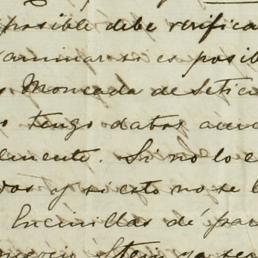 posible debe verifica
caminar si es posib
s Moncada de Setie
s tengo datos acer
lmente. Si no lo e
dos y si esto no se l
Encinillas dé par